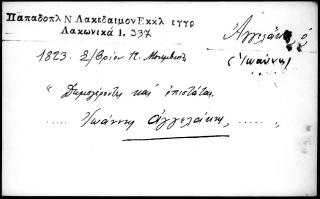 Παπαδοπλ Ν Λακεδαιμον Εκκλ εγγρ
Λακωνικά 1. 337
Ἀγγελάκης ὁ
(Ἰωάννης)
1823. Σ/βρίου
"Δημογέροντες καὶ ἐπιστάται
..... Ἰωάννης Ἀγγελάκης, ...... "